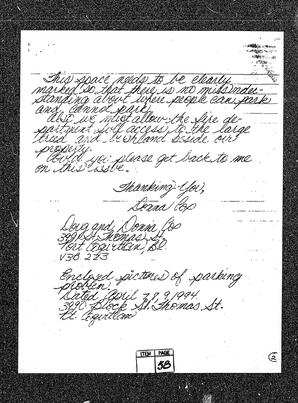 This space needs to be clearly
marked so that there is no misunder-
standing about where people can park
and cannot park.
Also we must allow the fire de-
partment full access to the large
treed and bushland beside our
property.
Would you please get back to me
on this issue.
Thanking-You,
Donna Cox
Doug and Donna Cox
St. Thomas St.
Port Coquitlam, BC.
V3B 2Z3
Enclosed pictures of parking
problem.
Dated April 9, 1994
3290 Block St. Thomas St.
Pt. Coquitlam
ITEM PAGE
5B
2